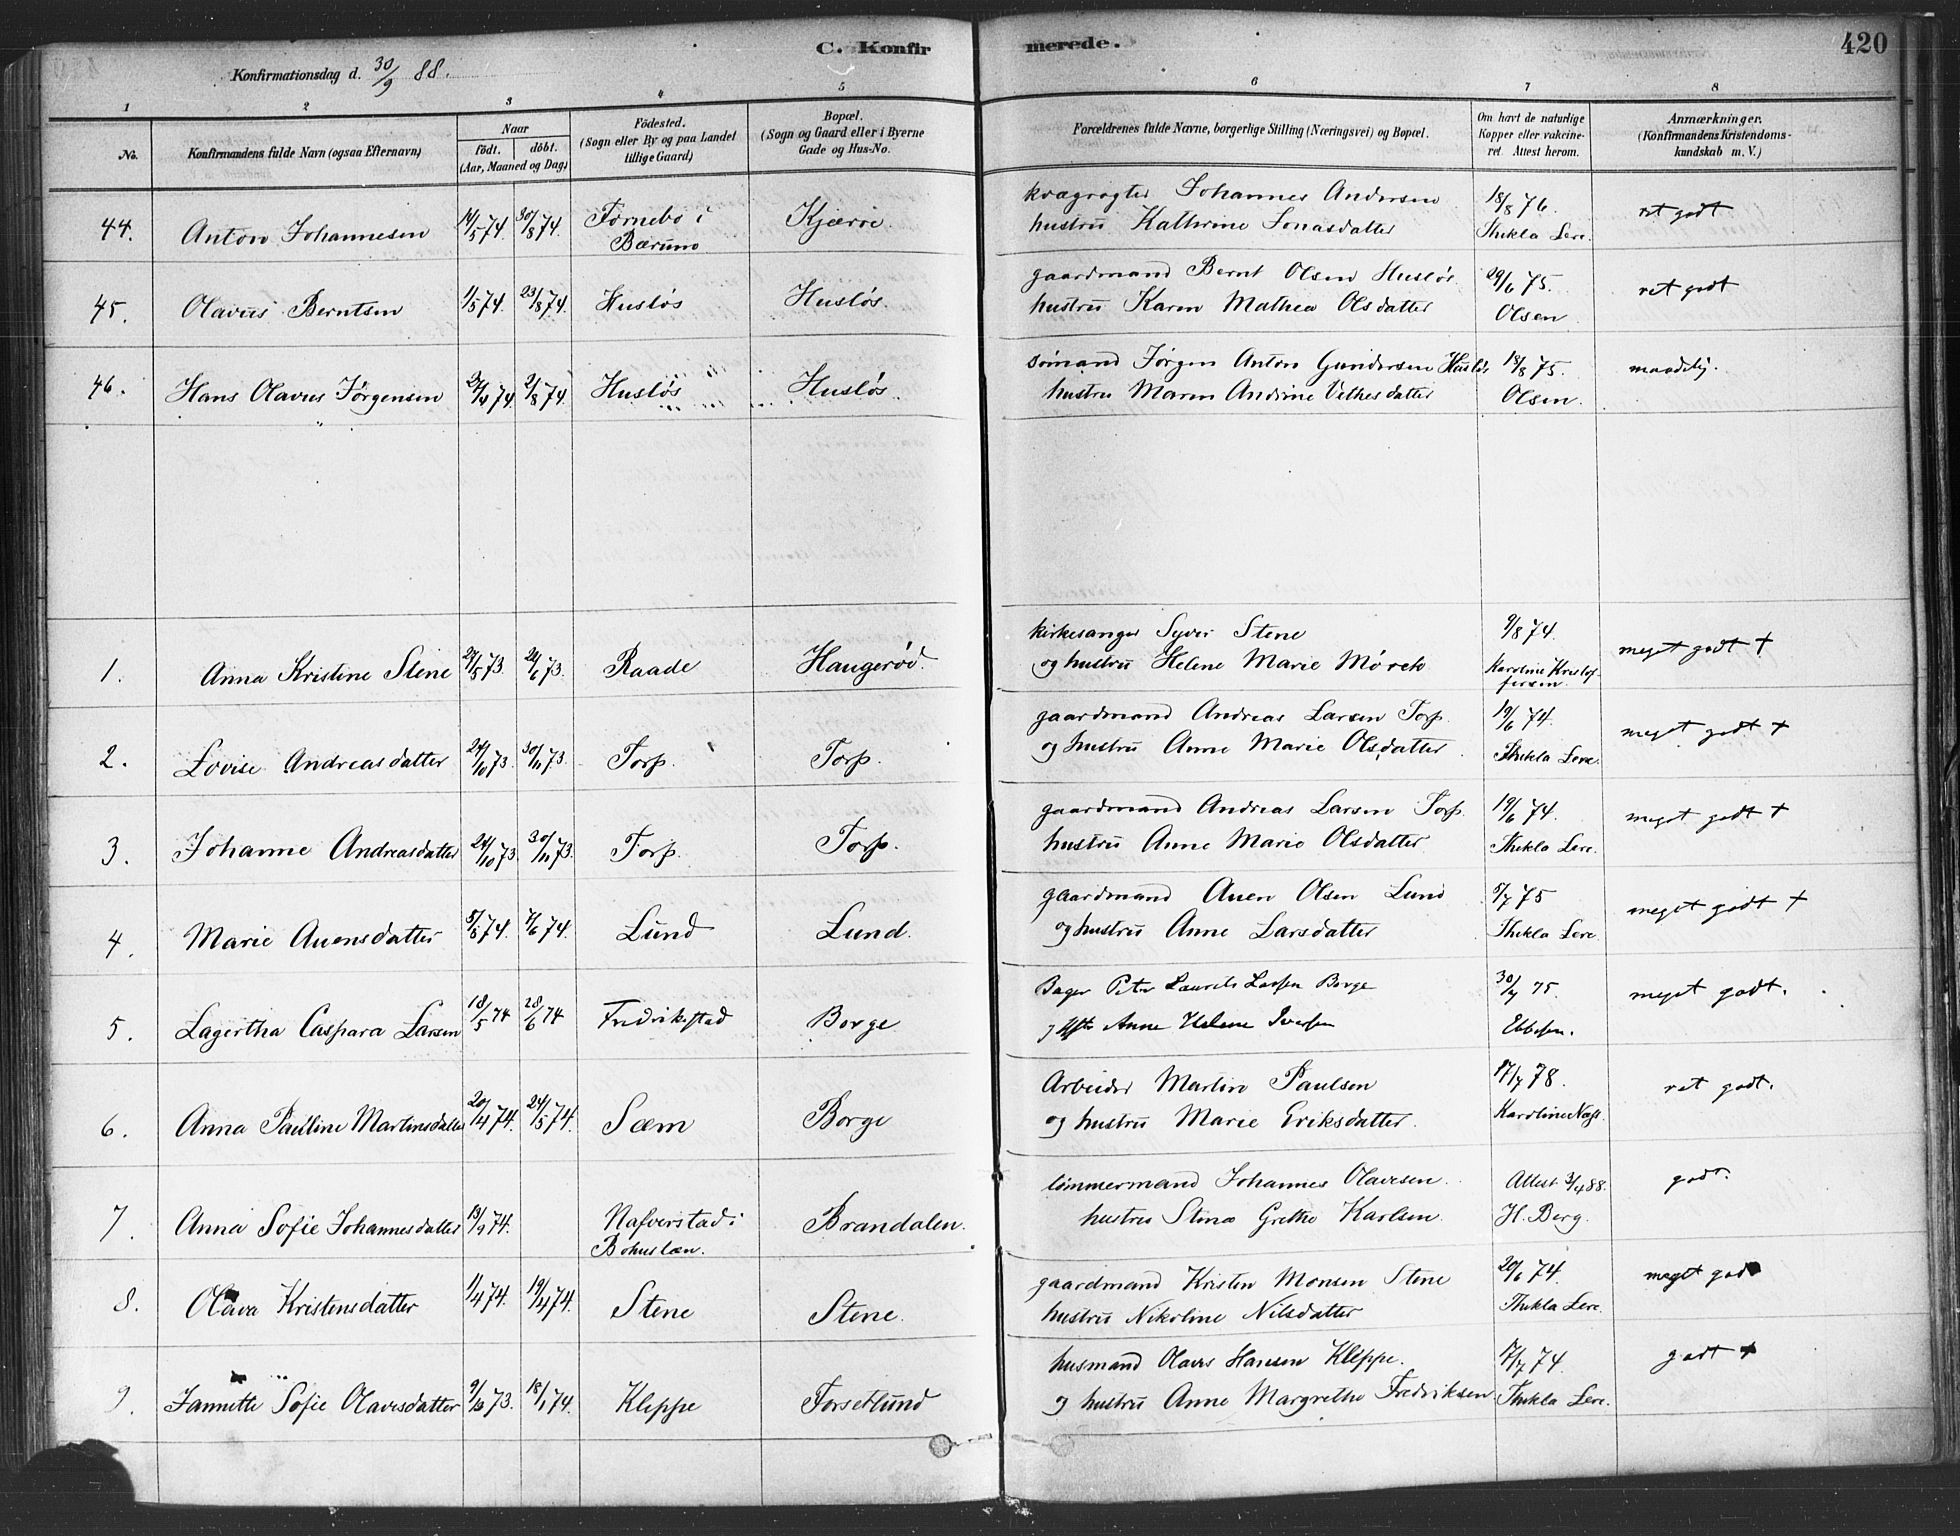 C. Konfirmerede.
420
Konfirmationsdag d. 30/9 88.
1 2 3 4 5 6 7 8
No. Konfirmandens fulde Navn (ogsaa Efternavn) Naar födt. döbt. (Aar, Maaned og Dag) Födested. (Sogn eller By og paa Landet tillige Gaard) Bopæl. (Sogn og Gaard eller i Byerne Gade og Hus-No. Forældrenes fulde Navne, borgerlige Stilling (Næringsvei) og Bopæl. Om havt de naturlige Kopper eller vakcineret. Attest herom. Anmærkninger. (Konfirmandens Kristendomskundskab m. V.)
44. Anton Johannesen 14/5 74 30/8 74. Fornebo i Bærum Kjærre. Johannes Andersen 18/8 76. ret godt
hustru Kathrine Jonasdatter Thekla Lere.
45. Olavus Berntsen 1/5 74. 23/8 74. Husløs Husløs. gaardmand Bernt Olsen Husløs 29/6 75. ret godt
hustru Karen Mathea Olsdatter Olsen
46. Hans Olavus Jørgensen 27/4 74. 2/8 74. Husløs Husløs sömand Jørgen Anton Gundersen Husløs 18/8 75. maadelig.
hustru Maren Andrine Olsen.
1. Anna Kristine Stene 27/5 73. 24/6 73. Raade Haugerød. kirkesanger Syver Stene 9/8 74. meget godt +
og hustru Helene Marie Mørck Karoline Kristoffersen
2. Lovise Andreasdatter 24/10 73. 30/11 73. Torp. Torp. gaardmand Andreas Larsen Torp. 19/6 74. meget godt +
og hustru Anne Marie Olsdatter. Thekla Lere.
3. Johanne Andreasdatter 24/10 73. 30/11 73. Torp. Torp. gaardmand Andreas Larsen Torp. 19/6 74. meget godt +
hustru Anne Marie Olsdatter. Thekla Lere.
4. Marie Auensdatter 5/5 74. 7/6 74. Lund Lund. gaardmand Auen Olsen Lund 5/7 75 meget godt +
og hustru Anne Larsdatter Thekla Lere
5. Lagertha Caspara Larsen 18/5 74 28/6 74 Fredrikstad Borge Bager Peter Laurits Larsen Borge 30/7 75. meget godt.
Anne Helene Iversen Ebbesen.
6. Anna Pauline Martinsdatter 20/4 74. 24/5 74. Sæm Borge Arbeider Martin Paulsen 17/7 78. ret godt.
og hustru Marie Eriksdatter. Karoline Næss.
7. Anna Sofie Johannesdatter 13/2 74. Nafverstad i Bohuslæn. Brandalen. tømmermand Johannes Olavesen Attest 3/4 88. godt.
hustru Stina Grethe Karlsen. H. Berg.
8. Olava Kristensdatter 1/4 74. 19/4 74. Stene Stene. gaardmand Kristen Monsen Stene 20/6 74. meget godt
hustru Nikoline Nilsdatter Thekla Lere.
9. Jannette Sofie Olavesdatter 9/10 73. 18/1 74. Kleppe Forsetlund husmand Olaves Hansen Kleppe. 17/7 74 godt +
og hustru Anne Margrethe Fredriksen Thekla Lere.